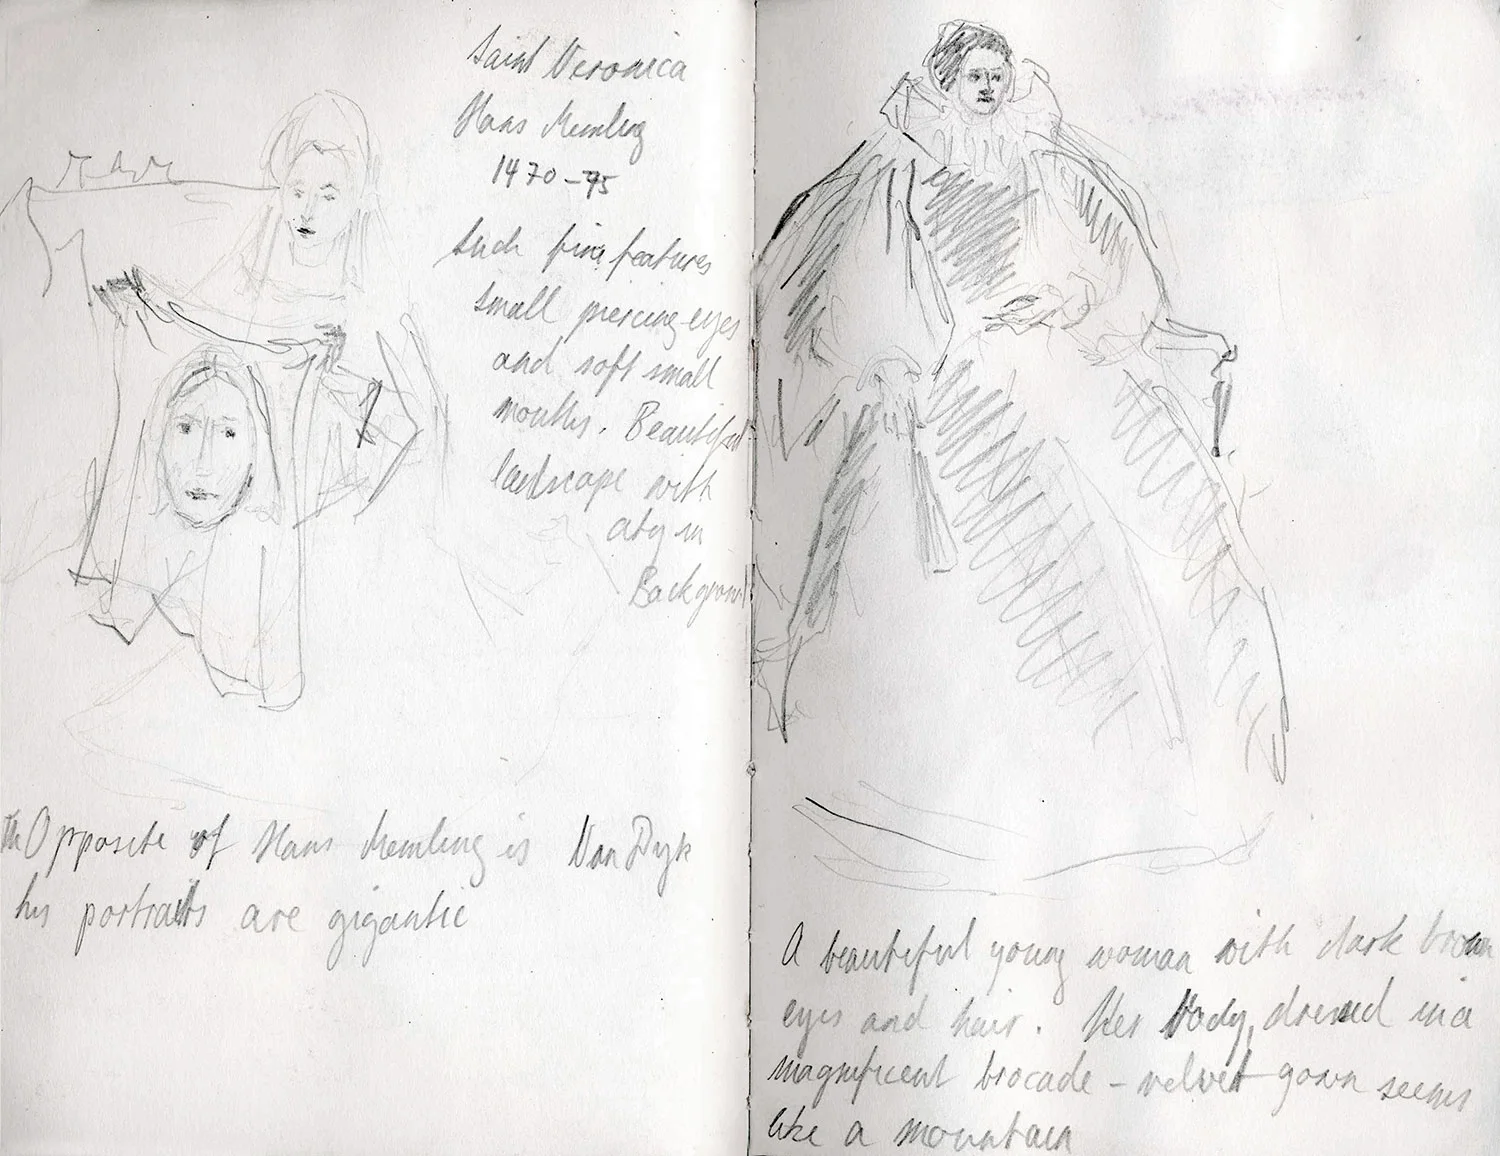 Saint Veronica
Hans Memling
1470-75
Such fine features
small piercing eyes
and soft small
mouths. Beautiful
landscape with
city in
Background
Opposite of Hans Memling is Van Dyk
his portraits are gigantic
A beautiful young woman with dark brown
eyes and hair. Her body, dressed in a
magnificent brocade - velvet gown seems
like a mountain